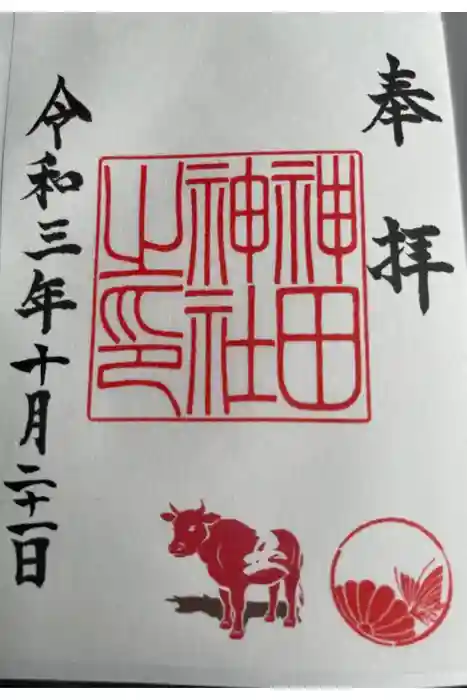 奉拝
神田
神社
之印
令和三年十月二十一日
丑